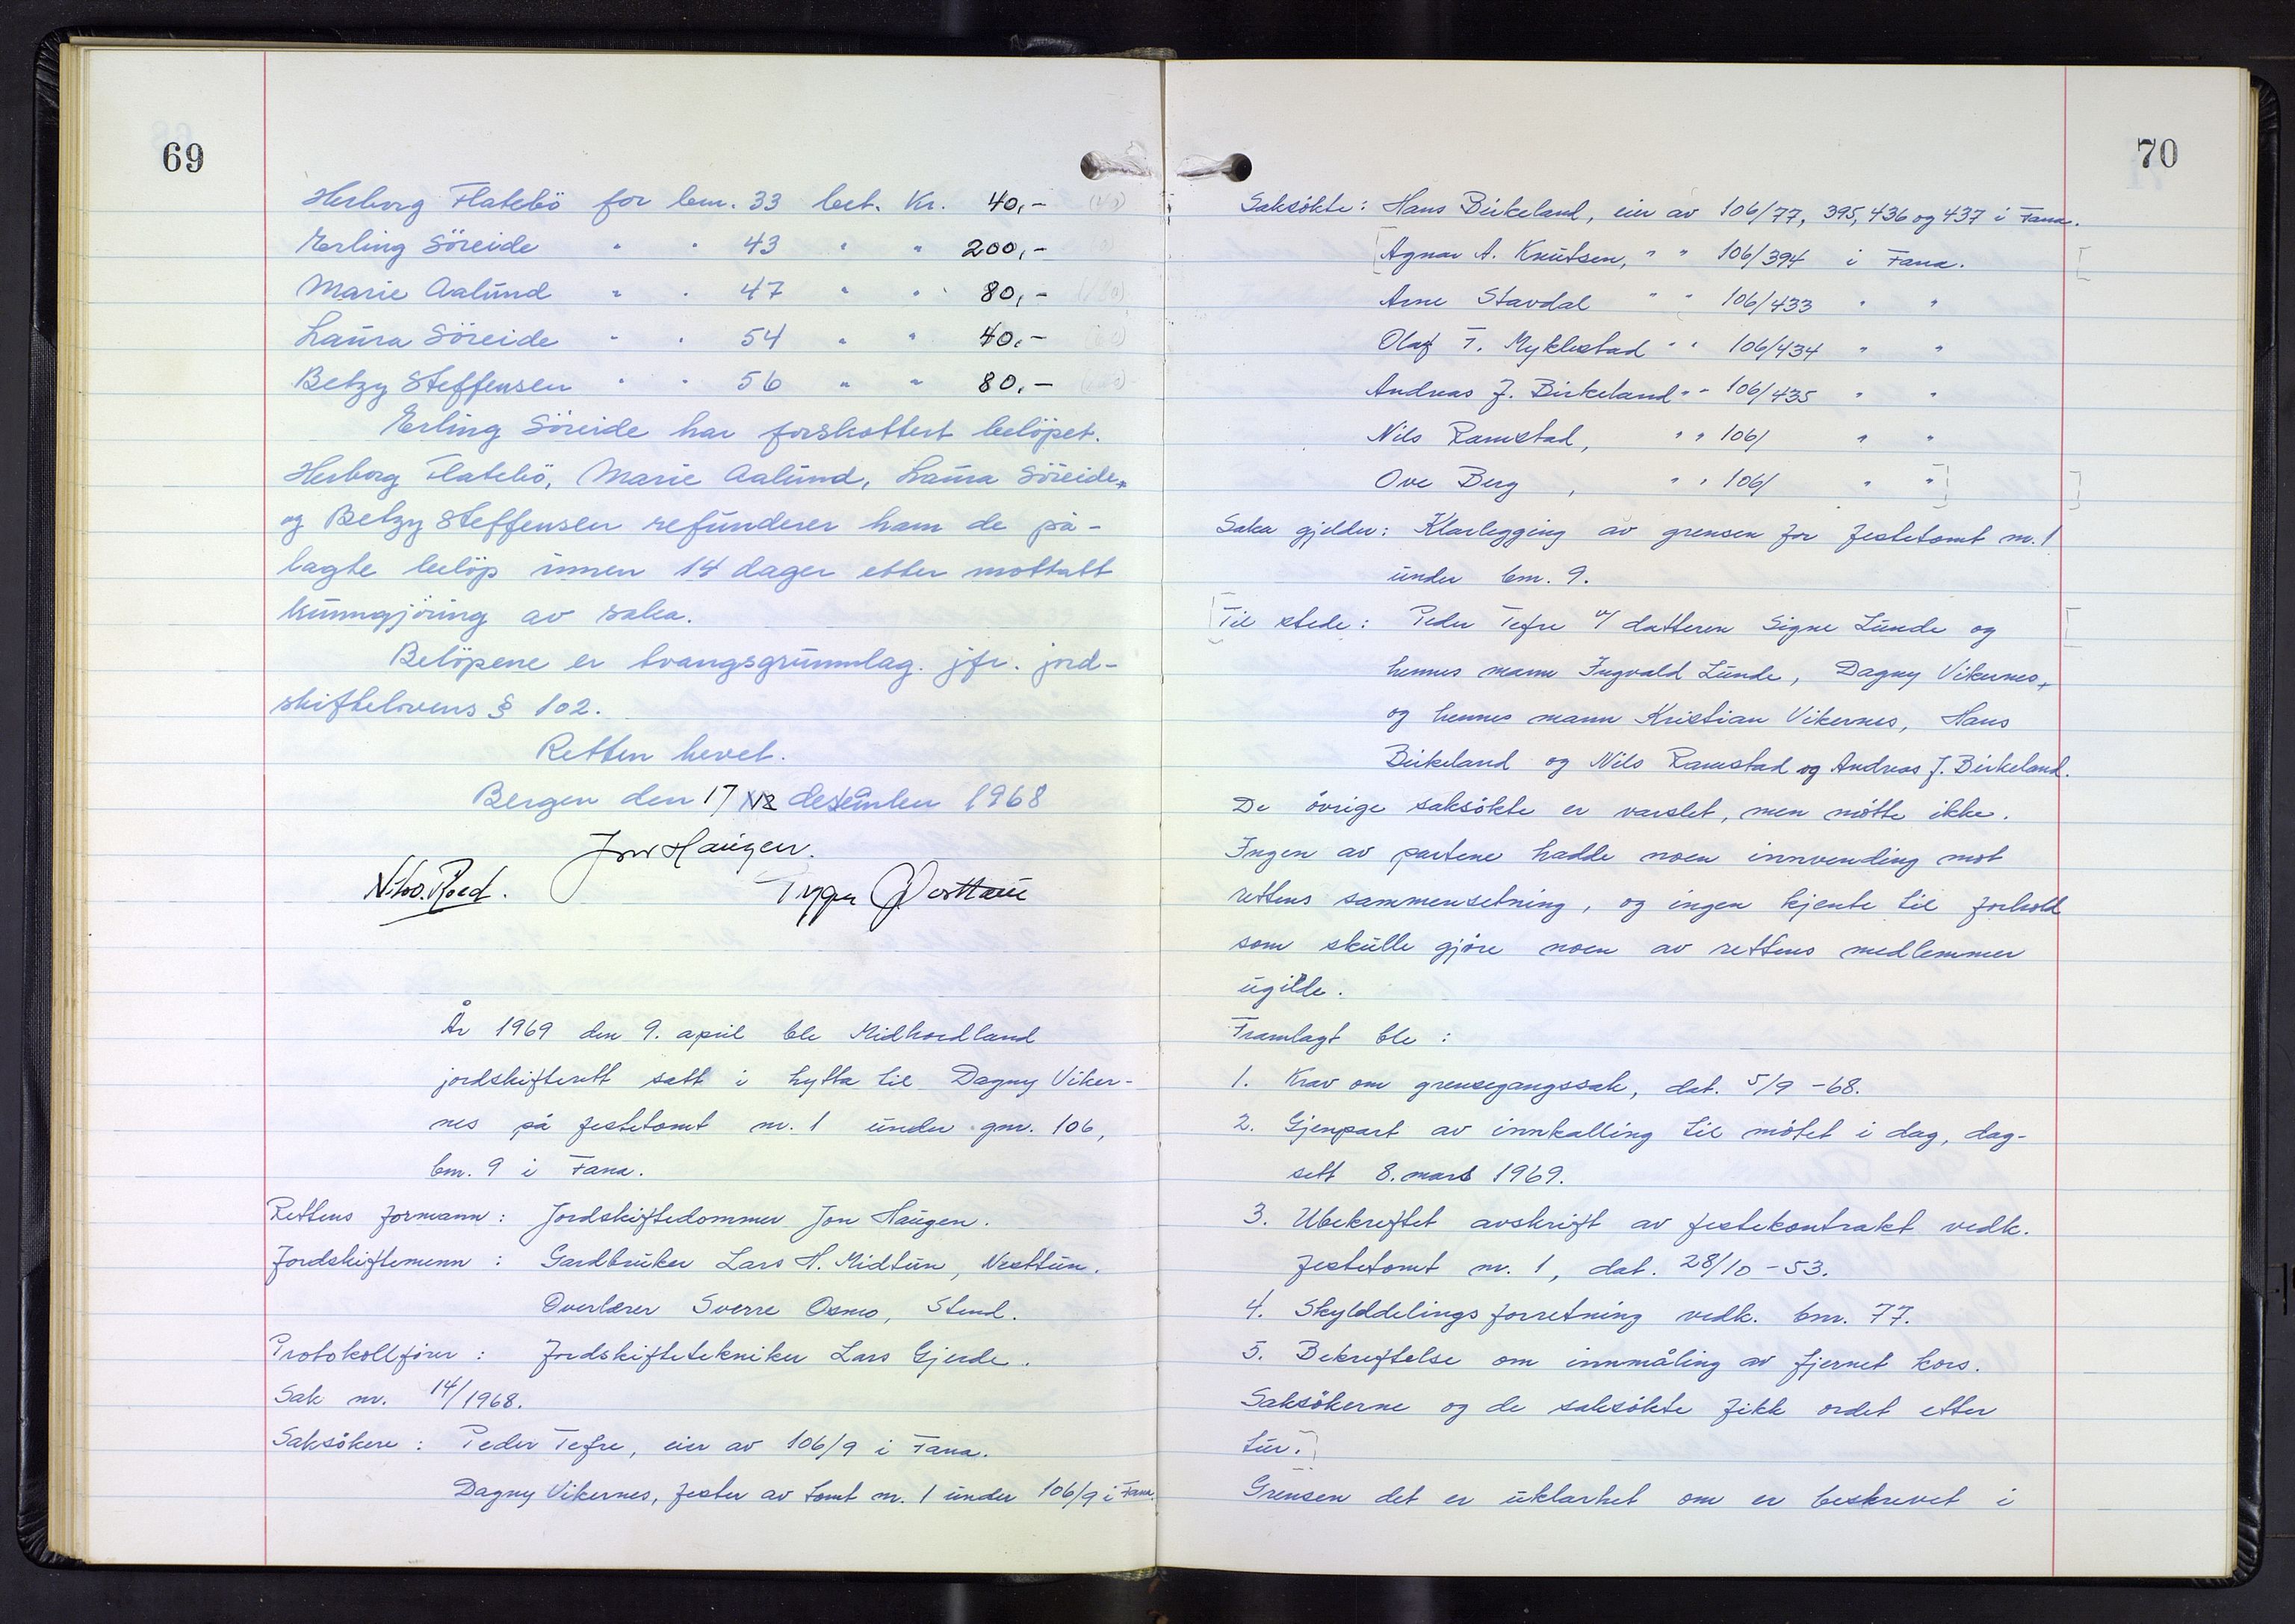 69
Herborg Flatebö for bnr. 33 bet. Kr. 40,-
Erling Söreide " " 43 " " 200,-
Marie Aalund " " 47 " " 80,-
Laura Söreide " " 54 " " 40,-
Betzy Steffensen " " 56 " " 80,-
Erling Söreide har forskottert belöpet.
Herborg Flatebö, Marie Aalund, Laura Söreide
og Betzy Steffensen refunderer ham de på-
lagte belöp innen 14 dager etter mottatt
kunngjöring av saka.
Belöpene er tvangsgrunnlag. jfr. jord-
skiftelovens § 102.
Retten hevet.
Bergen den 17 desember 1968
Jon Haugen.
Nils O. Røed. Trygve
År 1969 den 9. april ble Midhordland
jordskifterett satt i hytta til Dagny Viker-
nes på festetomt nr. 1 under gnr. 106,
bnr. 9 i Fana.
Rettens formann: Jordskiftedommer Jon Haugen.
Jordskiftemenn: Gardbruker Lars H. Midtun, Nesttun.
Overlærer Sverre Osmo, Stend.
Protokollfører: Jordskiftetekniker Lars Gjerde.
Sak nr. 14/1968.
Saksökere: Peder Tefre, eier av 106/9 i Fana.
Dagny Vikernes, fester av tomt nr. 1 under 106/9 i Fana.
70
Saksökte: Hans Birkeland, eier av 106/77, 395, 436 og 437 i Fana.
[Agnar A. Knutsen, " " 106/394 i Fana.
Arne Stavdal " " 106/433 " "
Olaf T. Myklestad " " 106/434 " "
Andreas J. Birkeland " " 106/435 " "
Nils Ramstad, " " 106/ " "
Ove Berg, " " 106/ " "]
Saka gjelder: Klarlegging av grensen for festetomt nr. 1
under bnr. 9.
[Til stede: Peder Tefre v/ datteren Signe Lunde og
hennes mann Ingvald Lunde, Dagny Vikernes
og hennes mann Kristian Vikernes, Hans
Birkeland og Nils Ramstad og Andreas J. Birkeland.
De övrige saksökte er varslet, men mötte ikke.
Ingen av partene hadde noen innvending mot
rettens sammensetning, og ingen kjente til forhold
som skulle gjöre noen av rettens medlemmer
ugilde.
Framlagt ble:
1. Krav om grensegangssak, dat. 5/9 -68.
2. Gjenpart av innkalling til mötet i dag, dag-
sett 8. mars 1969.
3. Ubekreftet avskrift av festekontrakt vedk.
festetomt nr. 1, dat. 28/10 -53.
4. Skylddelingsforretning vedk. bnr. 77.
5. Bekreftelse om innmåling av fjernet kors.
Saksökerne og de saksökte fikk ordet etter
tur.]
Grensen det er uklarhet om er beskrevet i